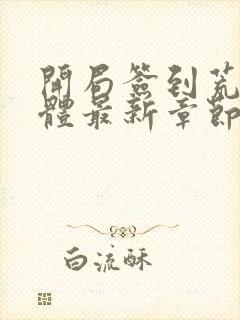 開局簽到荒
體最新章節
白流酥